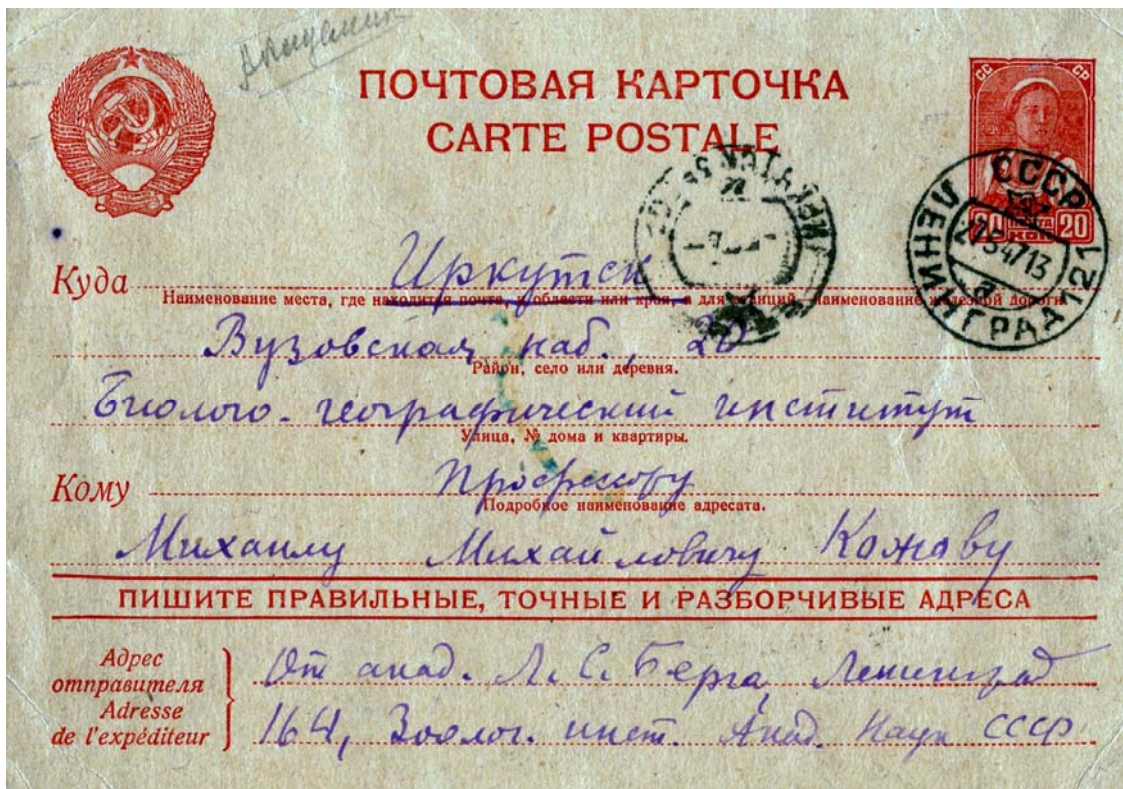 ПОЧТОВАЯ КАРТОЧКА
CARTE POSTALE
СС СР
20 ПОЧТА КОП 20
ИРКУТСК
СССР
27 5 47 13
ЛЕНИНГРАД 121
Куда Иркутск
Наименование места, где находится почта, и области или края, а для станций, наименование железной дороги.
Вузовская наб., 20
Район, село или деревня.
Биолого-географический институт
Улица, № дома и квартиры.
Кому Профессору
Подробное наименование адресата.
Михаилу Михайловичу Кожову
ПИШИТЕ ПРАВИЛЬНЫЕ, ТОЧНЫЕ И РАЗБОРЧИВЫЕ АДРЕСА
Адрес
отправителя
Adresse
de l'expéditeur
От акад. Л. С. Берга, Ленинград
164, Зоолог. инст. Акад. Наук СССР